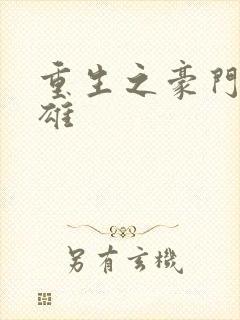 重生之豪門
雄
另有玄機